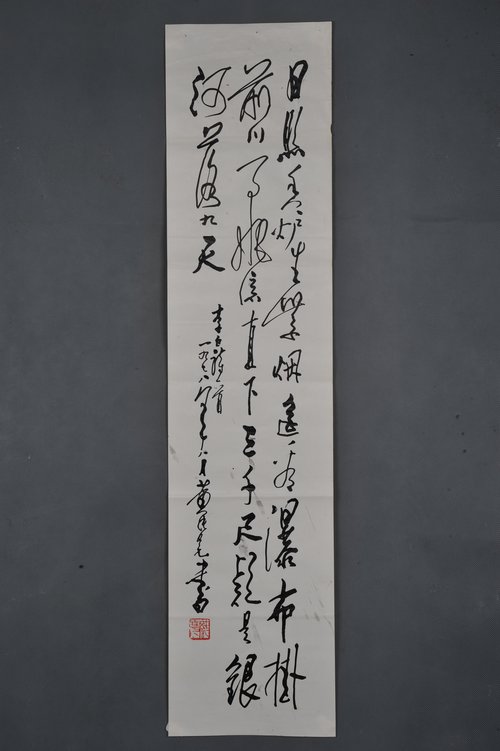 日照香炉生紫烟遥看瀑布掛
前川飛流直下三千尺疑是銀
河落九天
李白詩一首
一九七八年